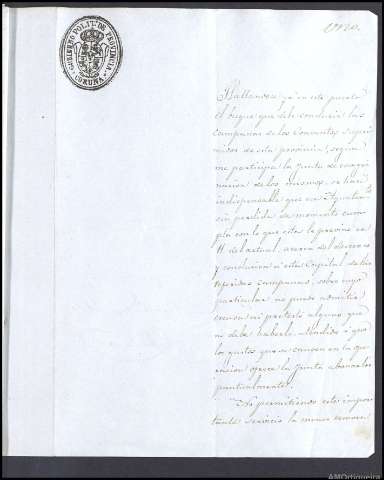 GOBIERNO POLIT.º DE PROVINCIA
CORUÑA
Hallandose ya en este puerto
el buque que debe conducir las
campanas de los Conventos supri-
midos de esta provincia, segun
me participa la Junta de enage-
nacion de los mismos, se hace
indispensable que ese Ayuntam.to
sin perdida de momento cum-
pla con lo que esta le previno en
11 del actual, acerca del
y conduccion á esta Capital de las
referidas campanas, sobre cuyo
particular no puedo admitir
escusa ni pretesto alguno que
ni debe haberlo, atendido á que
los gastos que se causen en la ope-
racion ofrece la Junta abonarlos
puntualmente.
No permitiendo este impor-
tante servicio la menor demora
AMOrtigueira